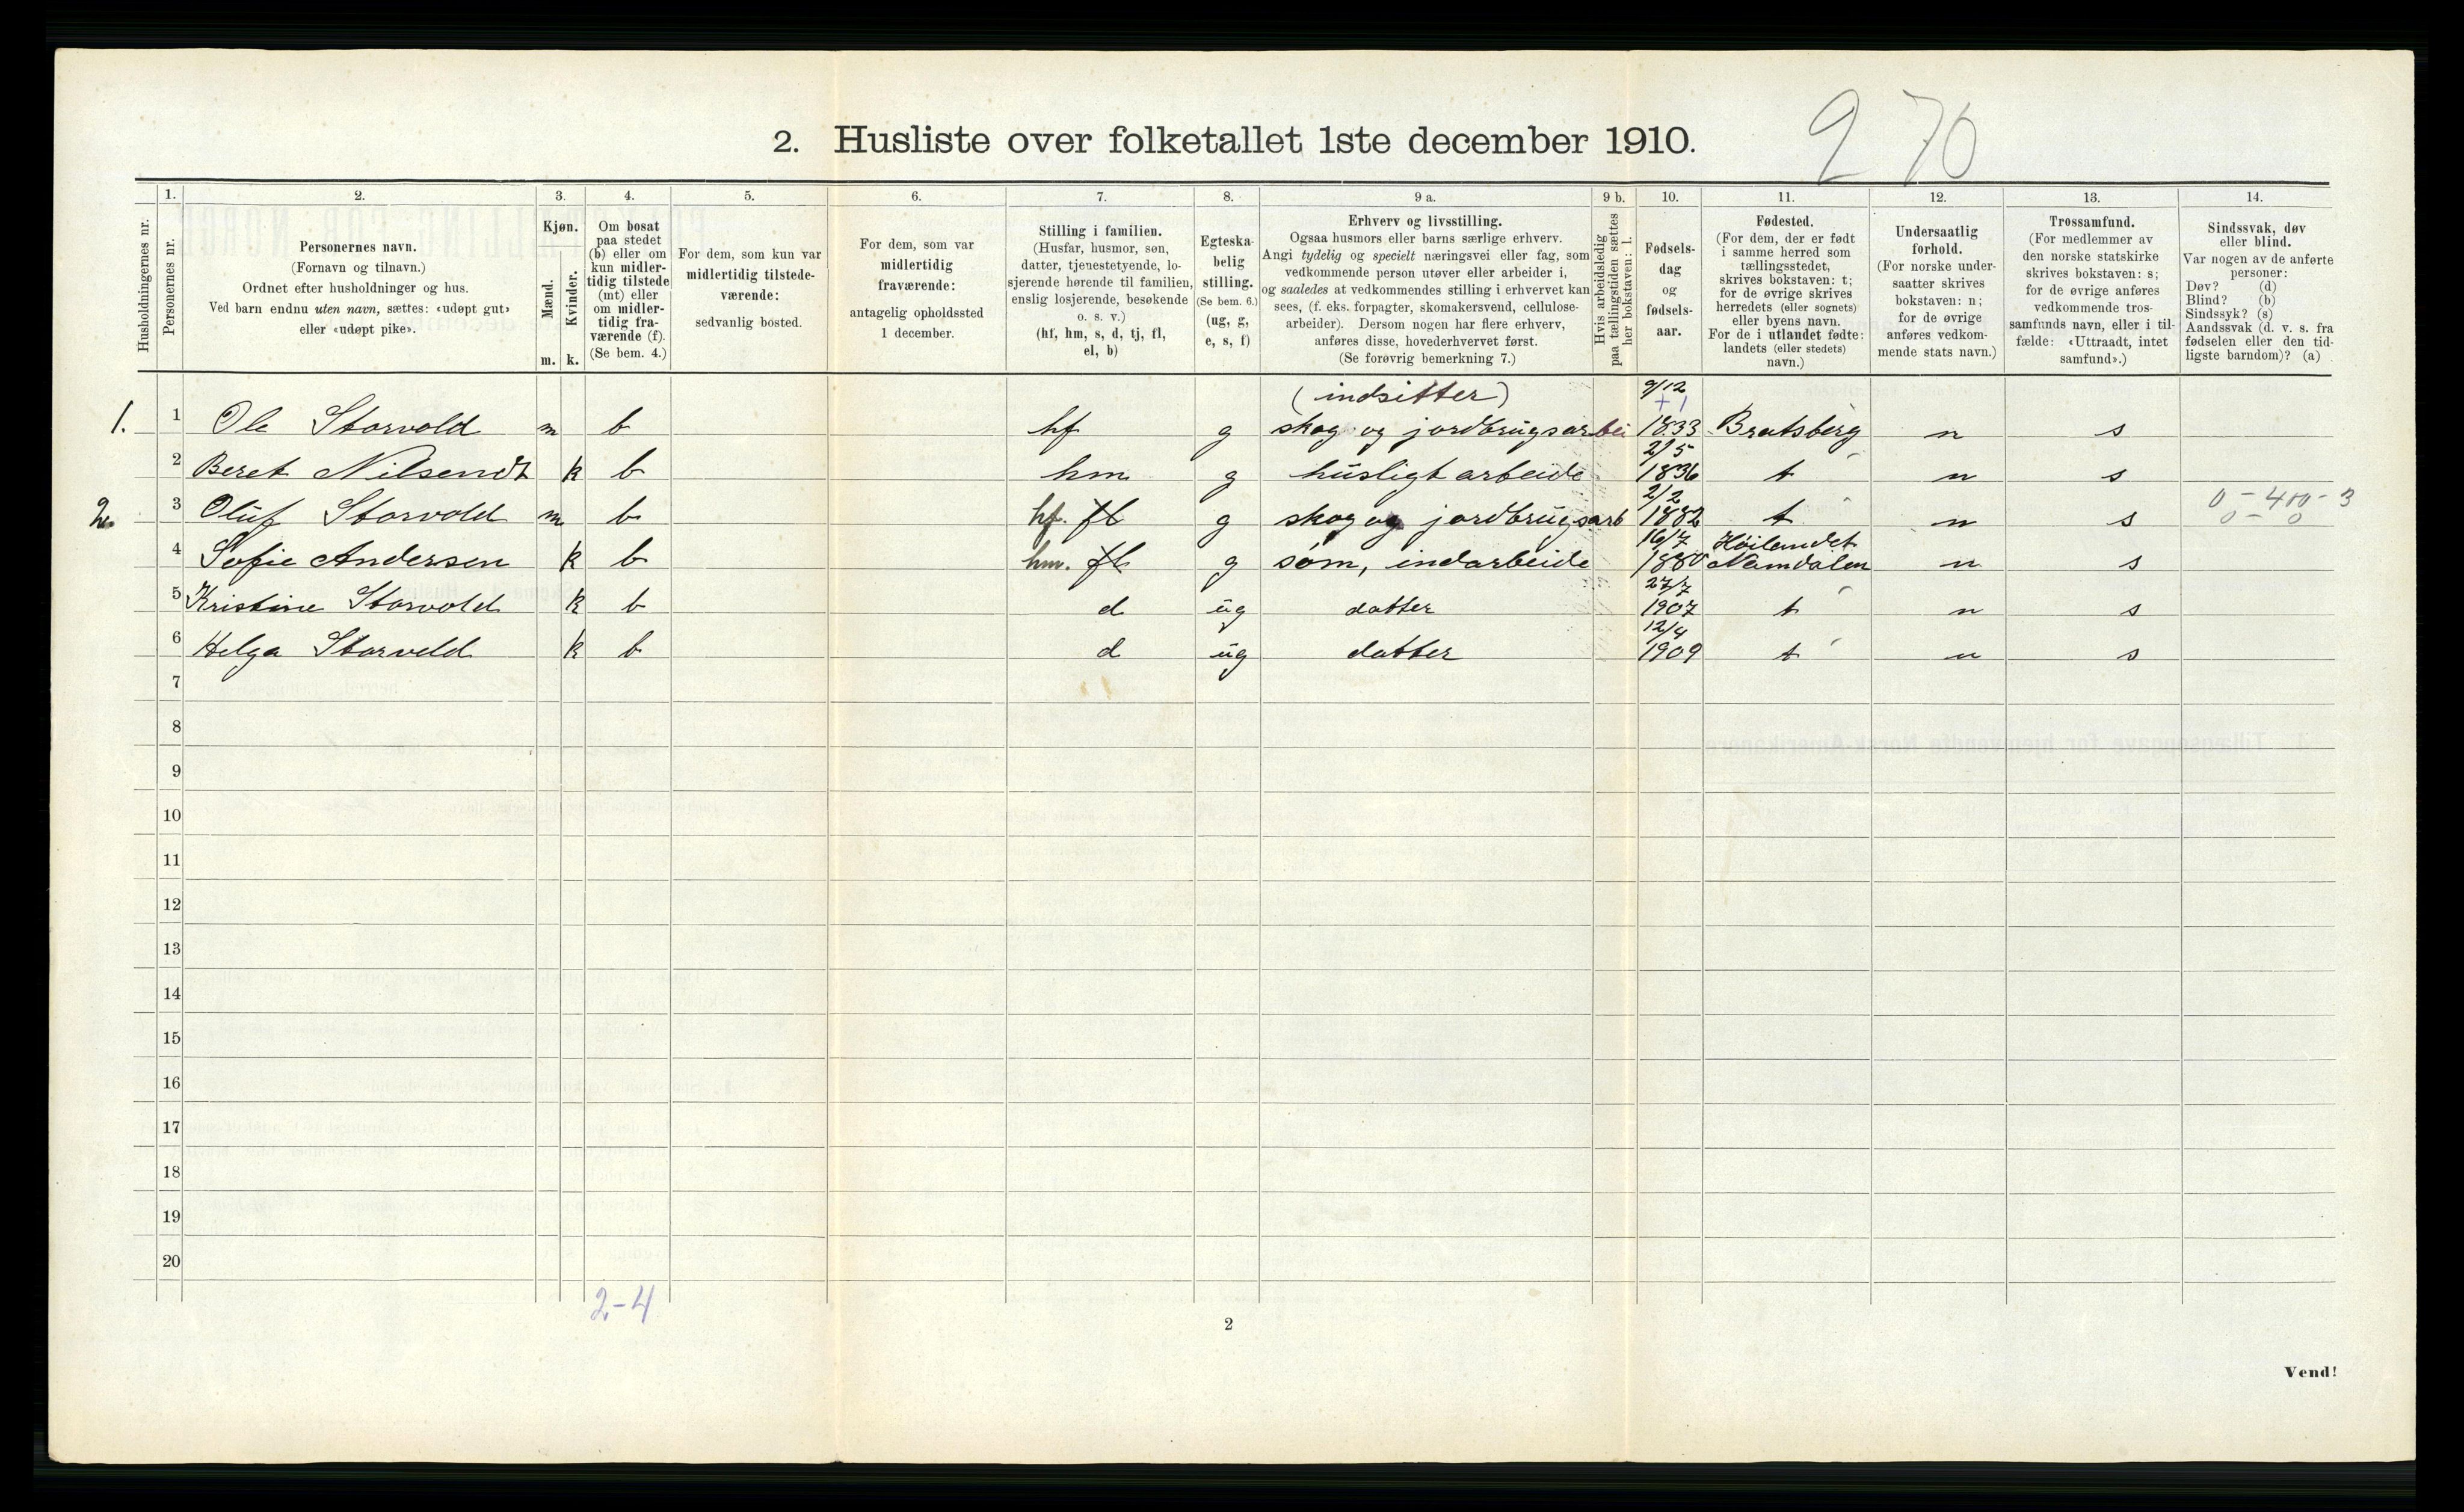 270
2. Husliste over folketallet 1ste december 1910.
Husholdningernes nr.
1.
Personernes nr.
2.
Personernes navn.
(Fornavn og tilnavn.)
Ordnet efter husholdninger og hus.
Ved barn endnu uten navn, sættes: «udøpt gut»
eller «udøpt pike».
3.
Kjøn.
Mænd.
Kvinder.
m. k.
4.
Om bosat
paa stedet
(b) eller om
kun midler-
tidig tilstede
(mt) eller
om midler-
tidig fra-
værende (f).
(Se bem. 4.)
5.
For dem, som kun var
midlertidig tilstede-
værende:
sedvanlig bosted.
6.
For dem, som var
midlertidig
fraværende:
antagelig opholdssted
1 december.
7.
Stilling i familien.
(Husfar, husmor, søn,
datter, tjenestetyende, lo-
sjerende hørende til familien,
enslig losjerende, besøkende
o. s. v.)
(hf, hm, s, d, tj, fl,
el, b)
8.
Egteska-
belig
stilling.
(Se bem. 6.)
(ug, g,
e, s, f)
9 a.
Erhverv og livsstilling.
Ogsaa husmors eller barns særlige erhverv.
Angi tydelig og specielt næringsvei eller fag, som
vedkommende person utøver eller arbeider i,
og saaledes at vedkommendes stilling i erhvervet kan
sees, (f. eks. forpagter, skomakersvend, cellulose-
arbeider). Dersom nogen har flere erhverv,
anføres disse, hovederhvervet først.
(Se forøvrig bemerkning 7.)
9 b.
Hvis arbeidsledig
paa tællingstiden sættes
her bokstaven: l.
10.
Fødsels-
dag
og
fødsels-
aar.
11.
Fødested.
(For dem, der er født
i samme herred som
tællingsstedet,
skrives bokstaven: t;
for de øvrige skrives
herredets (eller sognets)
eller byens navn.
For de i utlandet fødte:
landets (eller stedets)
navn.)
12.
Undersaatlig
forhold.
(For norske under-
saatter skrives
bokstaven: n;
for de øvrige
anføres vedkom-
mende stats navn.)
13.
Trossamfund.
(For medlemmer av
den norske statskirke
skrives bokstaven: s;
for de øvrige anføres
vedkommende tros-
samfunds navn, eller i til-
fælde: «Uttraadt, intet
samfund».)
14.
Sindssvak, døv
eller blind.
Var nogen av de anførte
personer:
Døv? (d)
Blind? (b)
Sindssyk? (s)
Aandssvak (d. v. s. fra
fødselen eller den tid-
ligste barndom)? (a)
(indsitter) 9/12
+ 1
1. 1 Ole Storvold m b hf g skog og jordbrugsarbei 1833 Bratsberg n s
2/5
2 Beret Nilsendt k b hm g húsligt arbeide 1836 t n s
2/2 0-400-3
2. 3 Oluf Storvold m b hf. fl g skog og jordbrugsarb 1882 t n s 0-0
16/7 Höilandet
4 Sofie Andersen k b hm. fl g söm, indarbeide 1880 Namdalen n s
27/7
5 Kristine Storvold k b d ug datter 1907 t n s
12/4
6 Helga Storvold k b d ug datter 1909 t n s
7
8
9
10
11
12
13
14
15
16
17
18
19
20
2-4
2
Vend!